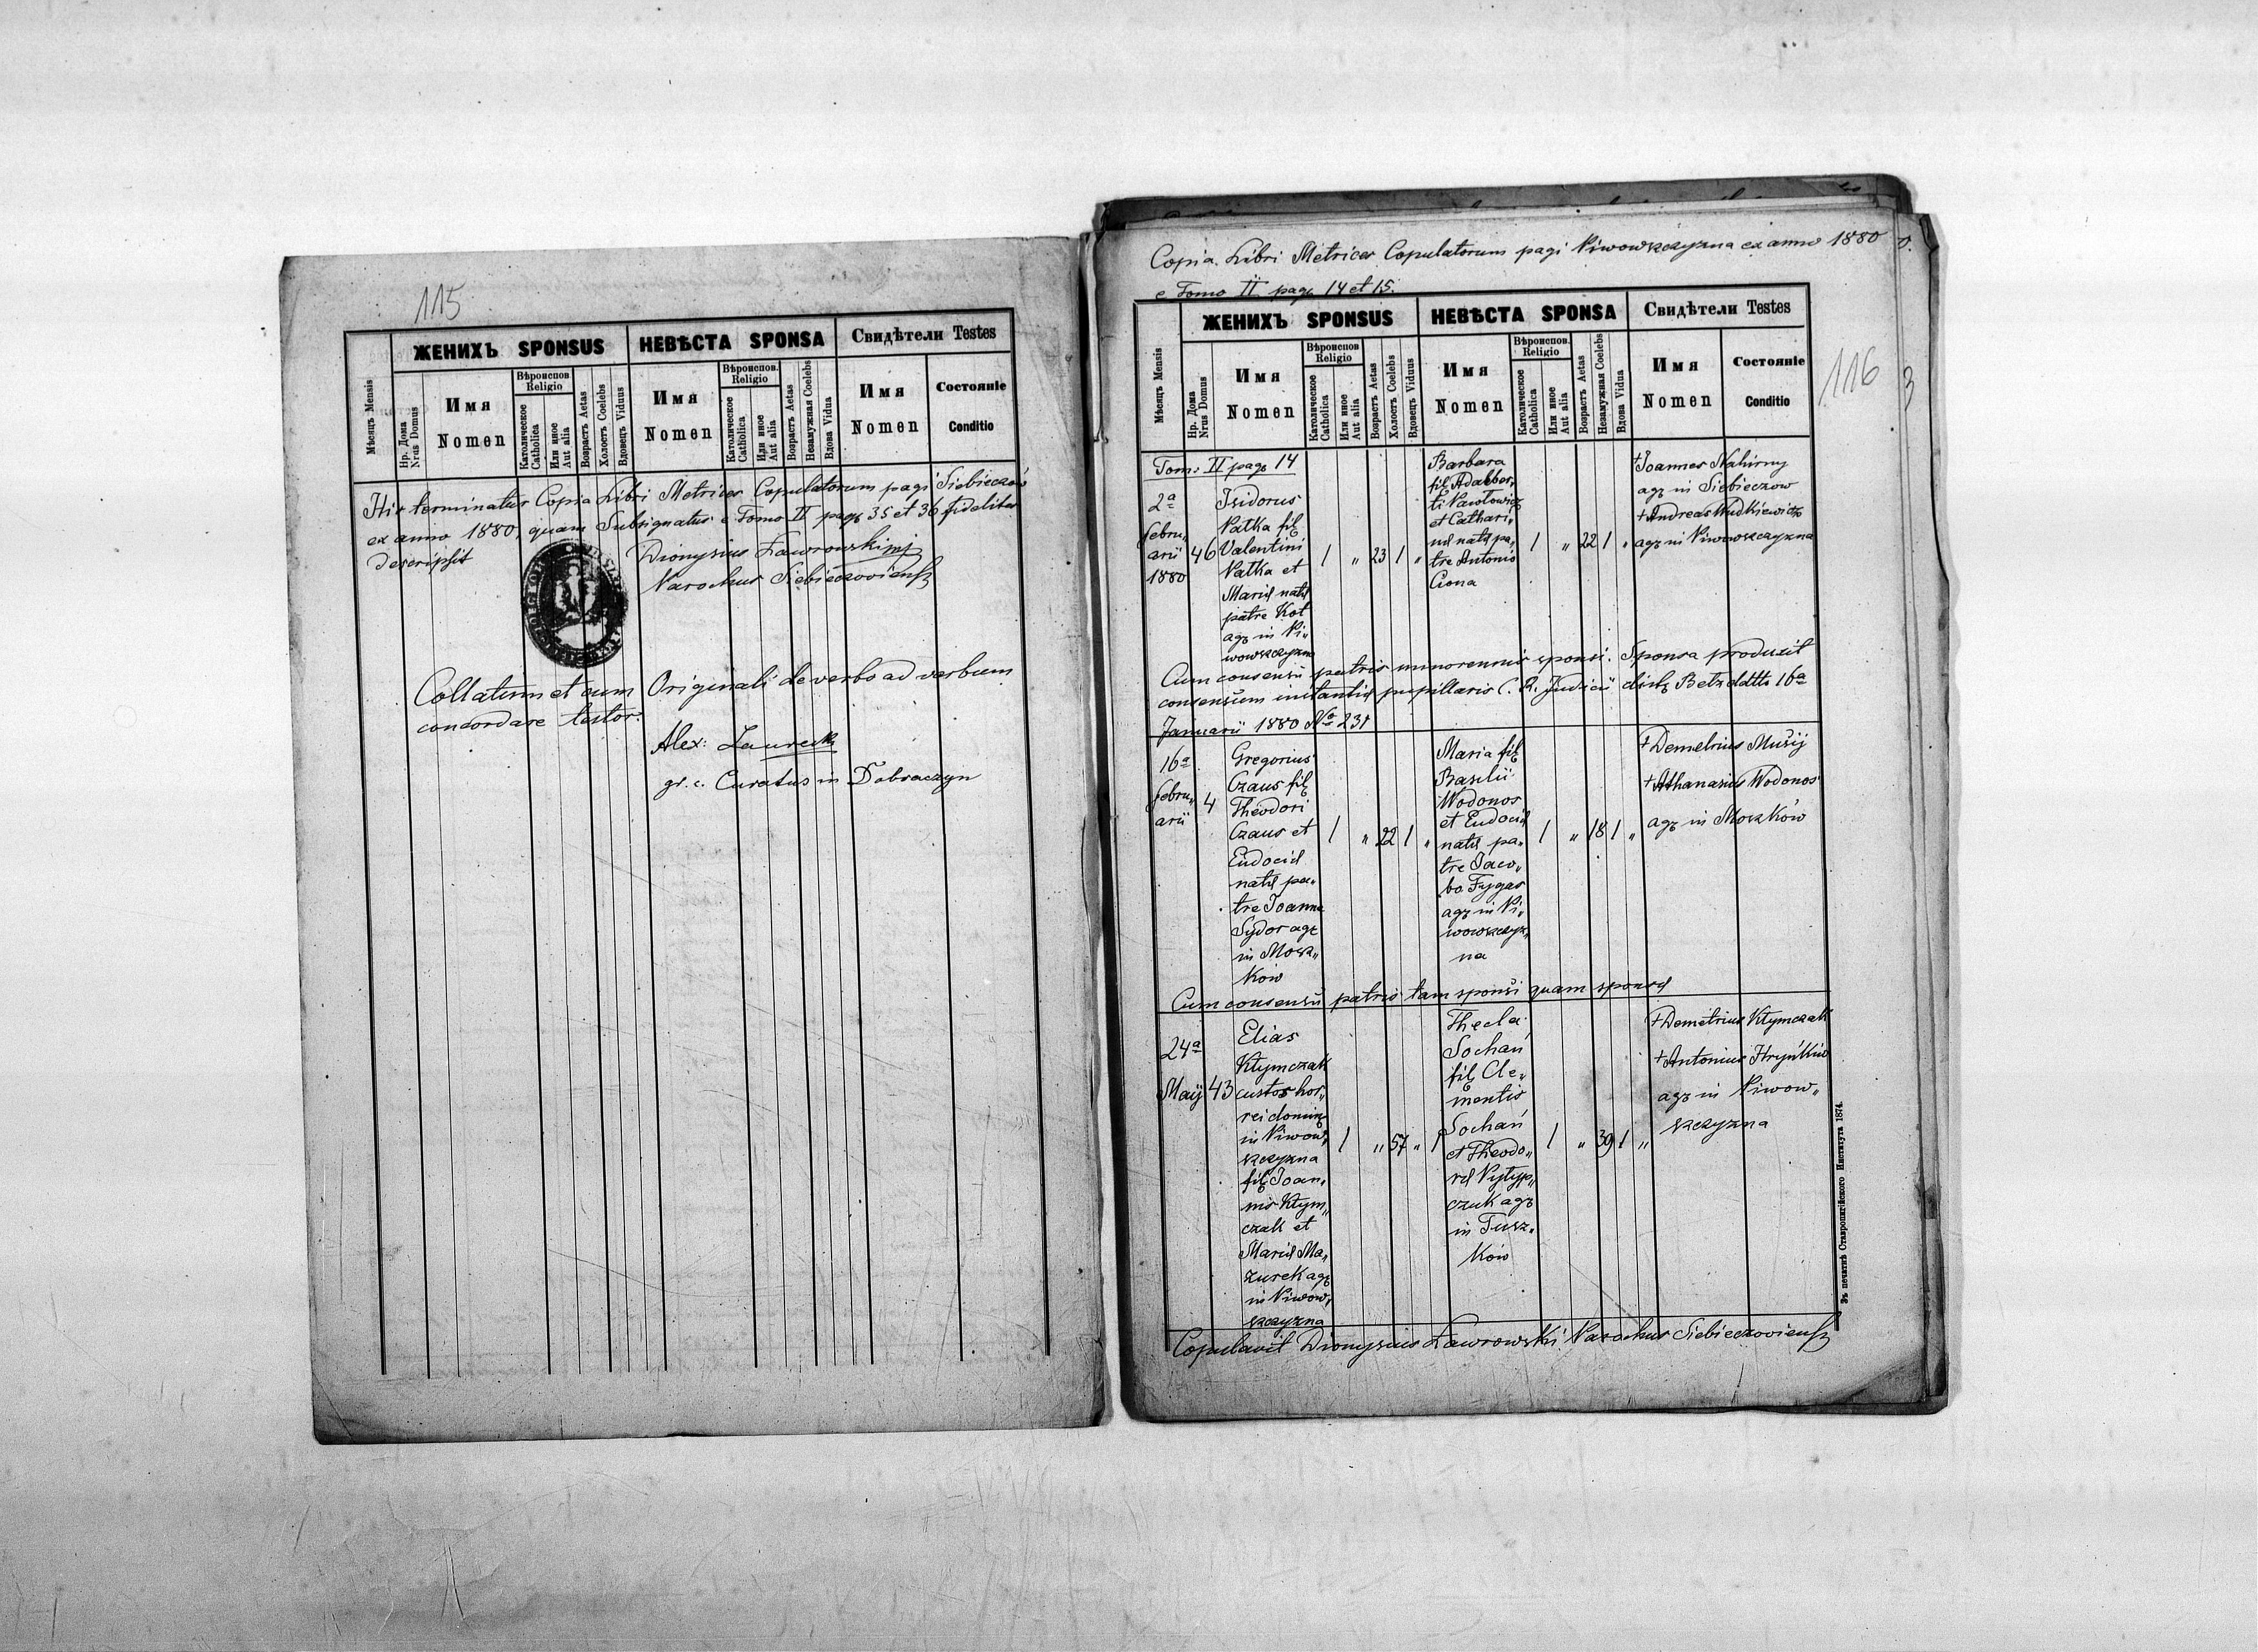 115
ЖЕНИХЪ SPONSUS
НЕВѢСТА SPONSA
Свидѣтели Testes
Мѣсяцъ Mensis
Нр. Дома Nrus Domus
Имя Nomen
Вѣроиспов. Religio
Католическое Catholica
Или иное Aut alia
Возрастъ Aetas
Холостъ Coelebs
Вдовецъ Viduus
Имя Nomen
Вѣроиспов. Religio
Католическое Catholica
Или иное Aut alia
Возрастъ Aetas
Незамужная Coelebs
Вдова Vidua
Имя Nomen
Состояніе Conditio
Hic terminatur Copia Libri Metrices Copulatorum pagi Siebieczów
ex anno 1880, quam Subsignatus e Tomo II pag 35 et 36 fideliter
descripsit
Dionysius Ławrowski mp
Parochus Siebieczoviensis
Collatum et cum Originali de verbo ad verbum
concordare testor.
Alex:
gr. c. Curatus in Dobraczyn
Copia Libri Metrices Copulatorum pagi Piwowszczyzna ex anno 1880
e Tomo II pag 14 et 15.
116
3
ЖЕНИХЪ SPONSUS
НЕВѢСТА SPONSA
Свидѣтели Testes
Мѣсяцъ Mensis
Нр. Дома Nrus Domus
Имя Nomen
Вѣроиспов Religio
Католическое Catholica
Или иное Aut alia
Возрастъ Aetas
Холостъ Coelebs
Вдовецъ Viduus
Имя Nomen
Вѣроиспов. Religio
Католическое Catholica
Или иное Aut alia
Возрастъ Aetas
Незамужная Coelebs
Вдова Vidua
Имя Nomen
Состояніе Conditio
Tom: II pag 14
2a
Febru„
arii
1880
46
Isidorus
Patka fil
Valentini
Patka et
Mariæ natæ
patre Kot
agr in Pi„
wowszczyzna
1 „ 23 1 „
Barbara
fil Adalber„
ti Pawłowicz
et Cathari„
næ natæ pa„
tre Antonio
Ciona
1 „ 22 1 „
†Joannes Nahirny
agr in Siebieczow
†Andreas Rudkiewicz
agr in Piwowszczyzna
Cum consensu patris minorennis sponsi. Sponsa produxit
consensum instantiæ pupillaris C. R. Judicii distr Betz ddtto 16a
Januarii 1880 No 231
16a
Febru„
arii
4
Gregorius
Czaus fil
Theodori
Czaus et
Eudociæ
natæ pa„
tre Joanne
Sydor agr
in Mosz„
ków
1 „ 22 1 „
Maria fil
Basilii
Wodonos
et Eudociæ
natæ pa„
tre Jaco„
bo Fygas
agr in Pi„
wowszczyz„
na
1 „ 18 1 „
†Demetrius Musij
†Athanasius Wodonos
agr in Moszków
Cum consensu patris tam sponsi quam sponsæ
24a
Maij
43
Elias
Kłymczak
custos hor„
rei domin
in Piwow„
szczyzna
fil Joan„
nis Kłym„
czak et
Mariæ Ma„
zurek agr
in Piwow„
szczyzna
1 „ 57 „ 1
Thecla
Sochań
fil Cle„
mentis
Sochań
et Theodo„
ræ Pyłyp„
czuk agr
in Tusz„
ków
1 „ 39 1 „
†Demetrius Kłymczak
†Antonius Hryńkiw
agr in Piwow„
szczyzna
Copulavit Dionysius Ławrowski Parochus Siebieczoviensis
Зъ печатнѣ Ставропигійского Института 1874.